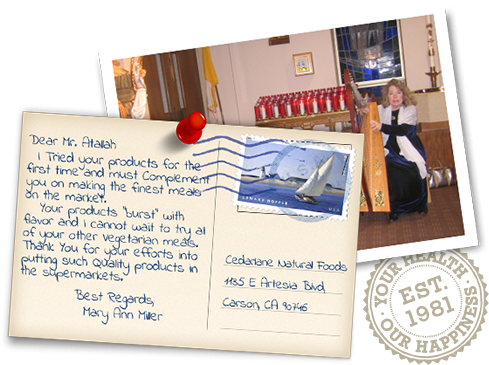 Dear Mr. Atallah
I Tried your products for the
first time and must Complement
you on making the finest meals
on the market.
Your products "burst" with
flavor and i cannot wait to try all
of your other vegetarian meals.
Thank You for your efforts into
putting such Quality products in
the supermarkets.
Best Regards,
Mary Ann Miller
EDWARD HOPPER
USA
Cedarlane Natural Foods
1135 E Artesia Blvd
Carson, CA 90746
YOUR HEALTH
EST.
1981
OUR HAPPINESS